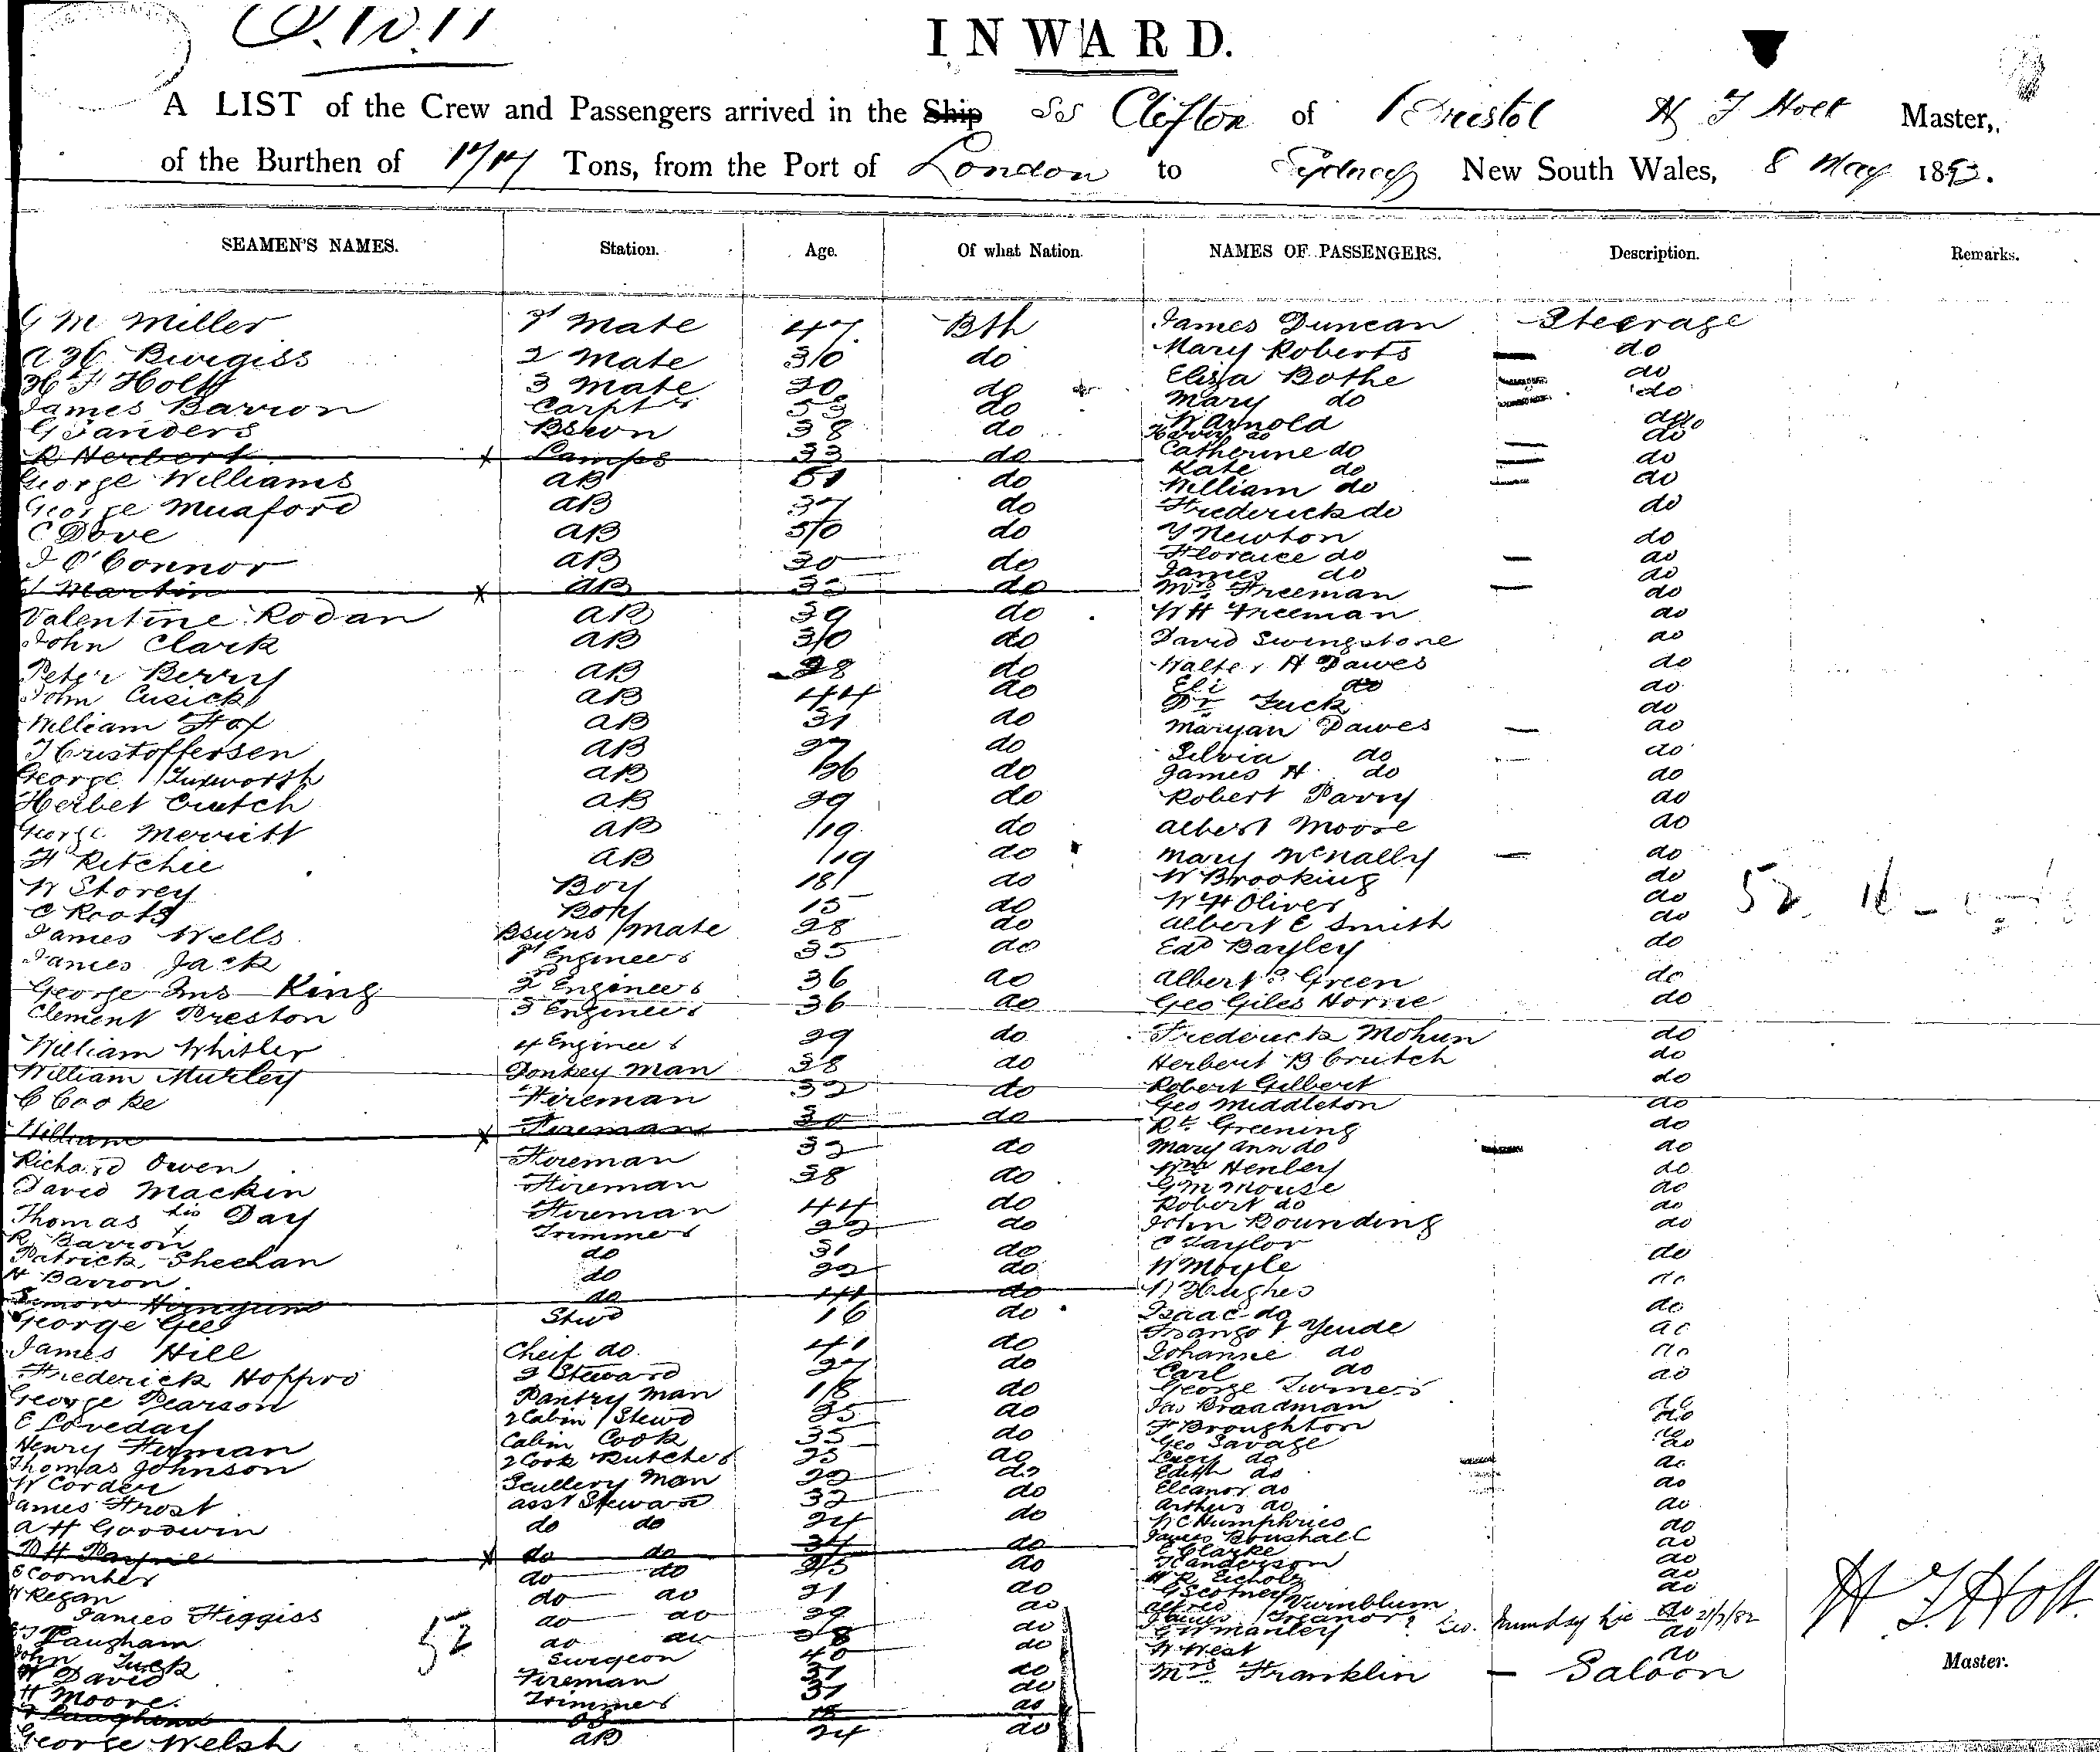 INWARD.
A LIST of the Crew and Passengers arrived in the Ship SS Clifton of Bristol H F Holt Master,
of the Burthen of Tons, from the Port of London to Sydney New South Wales, 8 May 1883.
SEAMEN'S NAMES. Station. Age. Of what Nation. NAMES OF PASSENGERS. Description. Remarks.
G M Miller 1st Mate 47 Bth James Duncan Steerage
Burgiss 2 Mate 30 do Mary Roberts do
H F Holt 3 Mate 20 do Eliza Bothe do
James Barron Carptr 53 do Mary do do
G Sanders Bswn 38 do W Arnold do
R Herbert Lamps 33 do Catherine do do
George Williams AB 51 do Kate do do
George Muaford AB 37 do William do do
C Dove AB 50 do Frederick do do
J O'Connor AB 20 do Y Newton do
Martin AB do Florence do do
Valentine Rodan AB 39 do James do do
John Clark AB 30 do Mrs Freeman do
Peter Berry AB 28 do W H Freeman do
John Cusick AB 44 do David Swingstone do
William Fox AB 31 do Walter H Dawes do
J Cristoffersen AB 27 do Eli do do
George Tuxworth AB 36 do Dr Tuck do
Herbet Crutch AB 29 do Maryan Dawes do
George Merritt AB 19 do Silvia do do
H Ritchie AB 19 do James H do do
W Storey Boy 18 do Robert Parry do
C Roots Boy 15 do Albert Moore do
James Wells Bswns Mate 28 do Mary McNally do
James Jack 1st Engineer 35 do W Brooking do
George Jno King 2nd Engineer 36 do W H Oliver do
Clement Preston 3 Engineer 36 do Albert E Smith do
William Whitler 4 Engineer 29 do Edd Bayley do
William Murley Donkey Man 38 do Albert Green do
C Cooke Fireman 32 do Geo Giles Horne do
William Fireman 30 do Frederick Mohun do
Richard Owen Fireman 32 do Herbert B Crutch do
David Mackin Fireman 28 do Robert Gilbert do
Thomas his Day Fireman 44 do Geo Middleton do
R Barron Trimmer 22 do Rt. Greening do
Patrick Sheehan do 31 do Mary Ann do do
H Barron do 22 do Wm Henley do
Simon do 44 do G M Mouse do
George Gee Stwd 16 do Robert do do
James Hill Cheif do 41 do John Rounding do
Frederick Hoppro 2 Steward 27 do C Taylor do
George Pearson Pantry Man 18 do W Moyle do
E Loveday 2 Cabin Stewd 25 do Hughes do
Henry Firman Cabin Cook 35 do Isaac do do
Thomas Johnson 2 Cook Butcher 25 do Yeude do
W Corder Scullery Man 22 do Johanne do do
James Frost asst Steward 32 do Carl do do
A H Goodwin do do 24 do George Turner do
Payne do do 34 do Jas Broadman do
E Coomber do do 25 do F Broughton do
W Regan do do 21 do Geo Savage do
James Higgiss do do 29 do Lucy do do
Vaugham do do 28 do Edith do do
John Tuck Surgeon 40 do Eleanor do do
W David Fireman 31 do Arthur do do
H Moore Trimmer 31 do W C Humphries do
do James Boushall do
George Welsh AB 24 do E Clarke do
Anderson do
W R Eicholz do
G Scotney do
Alfred Vurnblum do
James Treanor do
G W Manley do
W West do
Mrs Franklin Saloon
52
52
H F Holt
Master.